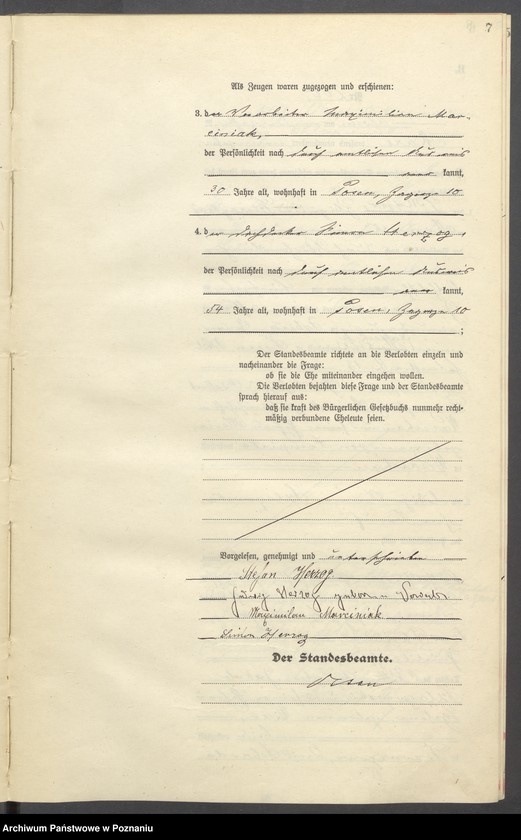 7
Als Zeugen waren zugezogen und erschienen:
3. der Vorarbeiter Maximilian Mar-
ciniak,
der Persönlichkeit nach durch amtlichen Ausweis
kannt,
30 Jahre alt, wohnhaft in Posen, Zagorze 10
4. der Dachdecker Simon Herzog,
der Persönlichkeit nach durch amtlichen Ausweis
kannt,
54 Jahre alt, wohnhaft in Posen, Zagorze 10
;
Der Standesbeamte richtete an die Verlobten einzeln und
nacheinander die Frage:
ob sie die Ehe miteinander eingehen wollen.
Die Verlobten bejahten diese Frage und der Standesbeamte
sprach hierauf aus:
daß sie kraft des Bürgerlichen Gesetzbuchs nunmehr recht-
mäßig verbundene Eheleute seien.
Vorgelesen, genehmigt und unterschrieben
Stefan Herzog
Herzog geborene
Maximilian Marciniak
Simon Herzog
Der Standesbeamte.
Archiwum Państwowe w Poznaniu